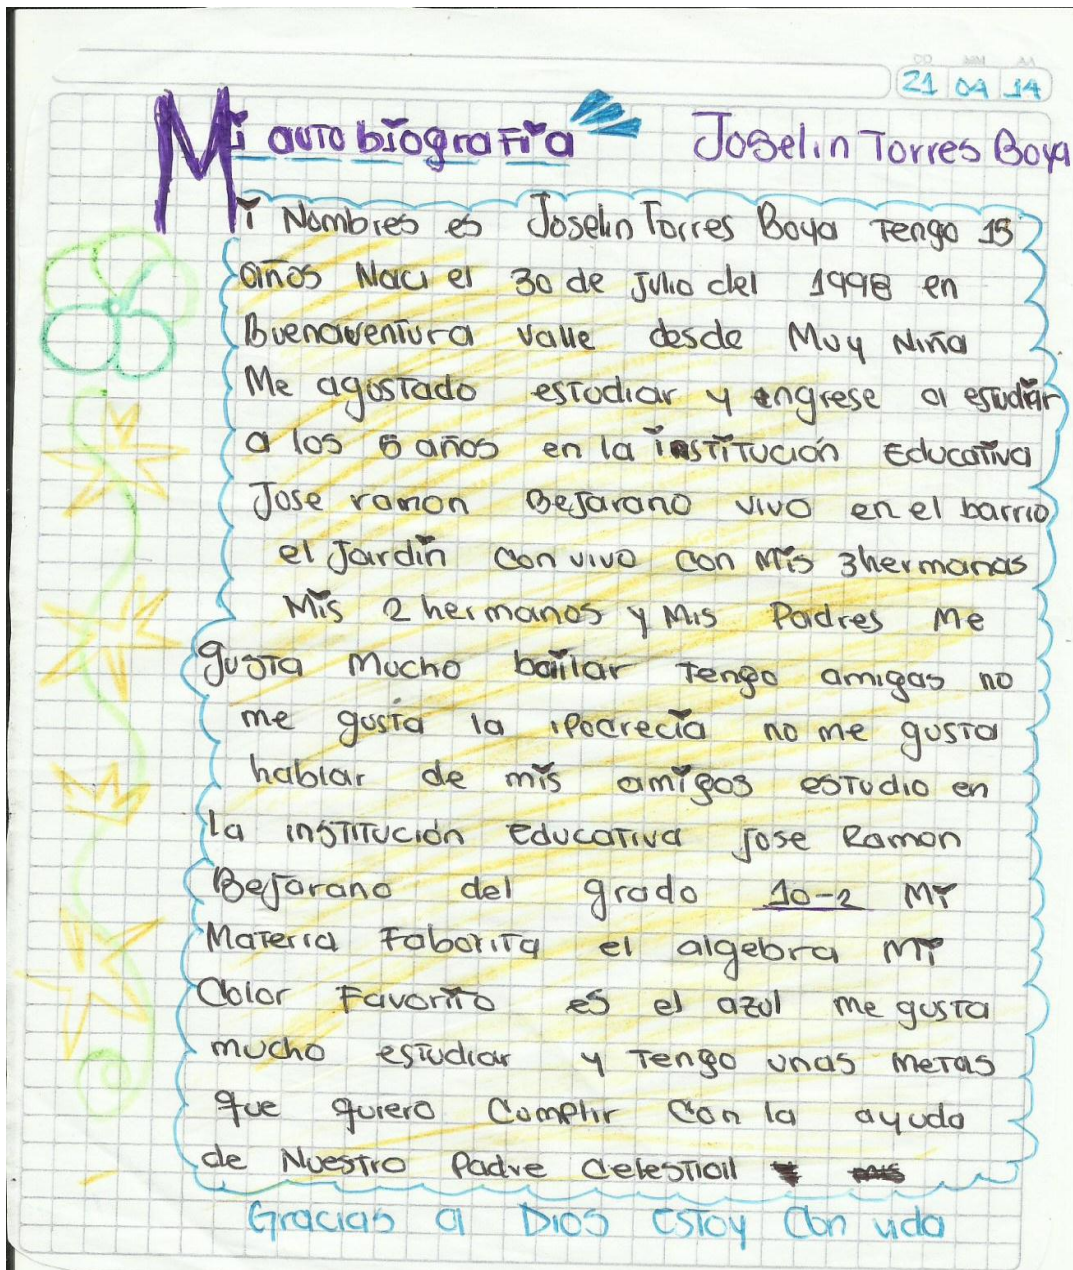 DD MM AA
21 04 14
Mi autobiografia Joselin Torres Boya
Mi Nombres es Joselin Torres Boya Tengo 15
años Naci el 30 de Julio del 1998 en
Buenaventura valle desde Muy Niña
Me agustado estudiar y engrese a estudiar
a los 5 años en la institución Educativa
Jose ramon Bejarano vivo en el barrio
el Jardin con vivo con Mis 3 hermanas
Mis 2 hermanos y Mis Padres Me
gusta Mucho bailar Tengo amigas no
me gusta la ipocrecia no me gusta
hablar de mis amigos estudio en
la institución educativa jose Ramon
Bejarano del grado 10-2 Mi
Materia Faborita el algebra Mi
Color Favorito es el azul me gusta
mucho estudiar y Tengo unas Metas
que quiero Cumplir Con la ayuda
de Nuestro Padre Celestial
Gracias a Dios Estoy Con vida